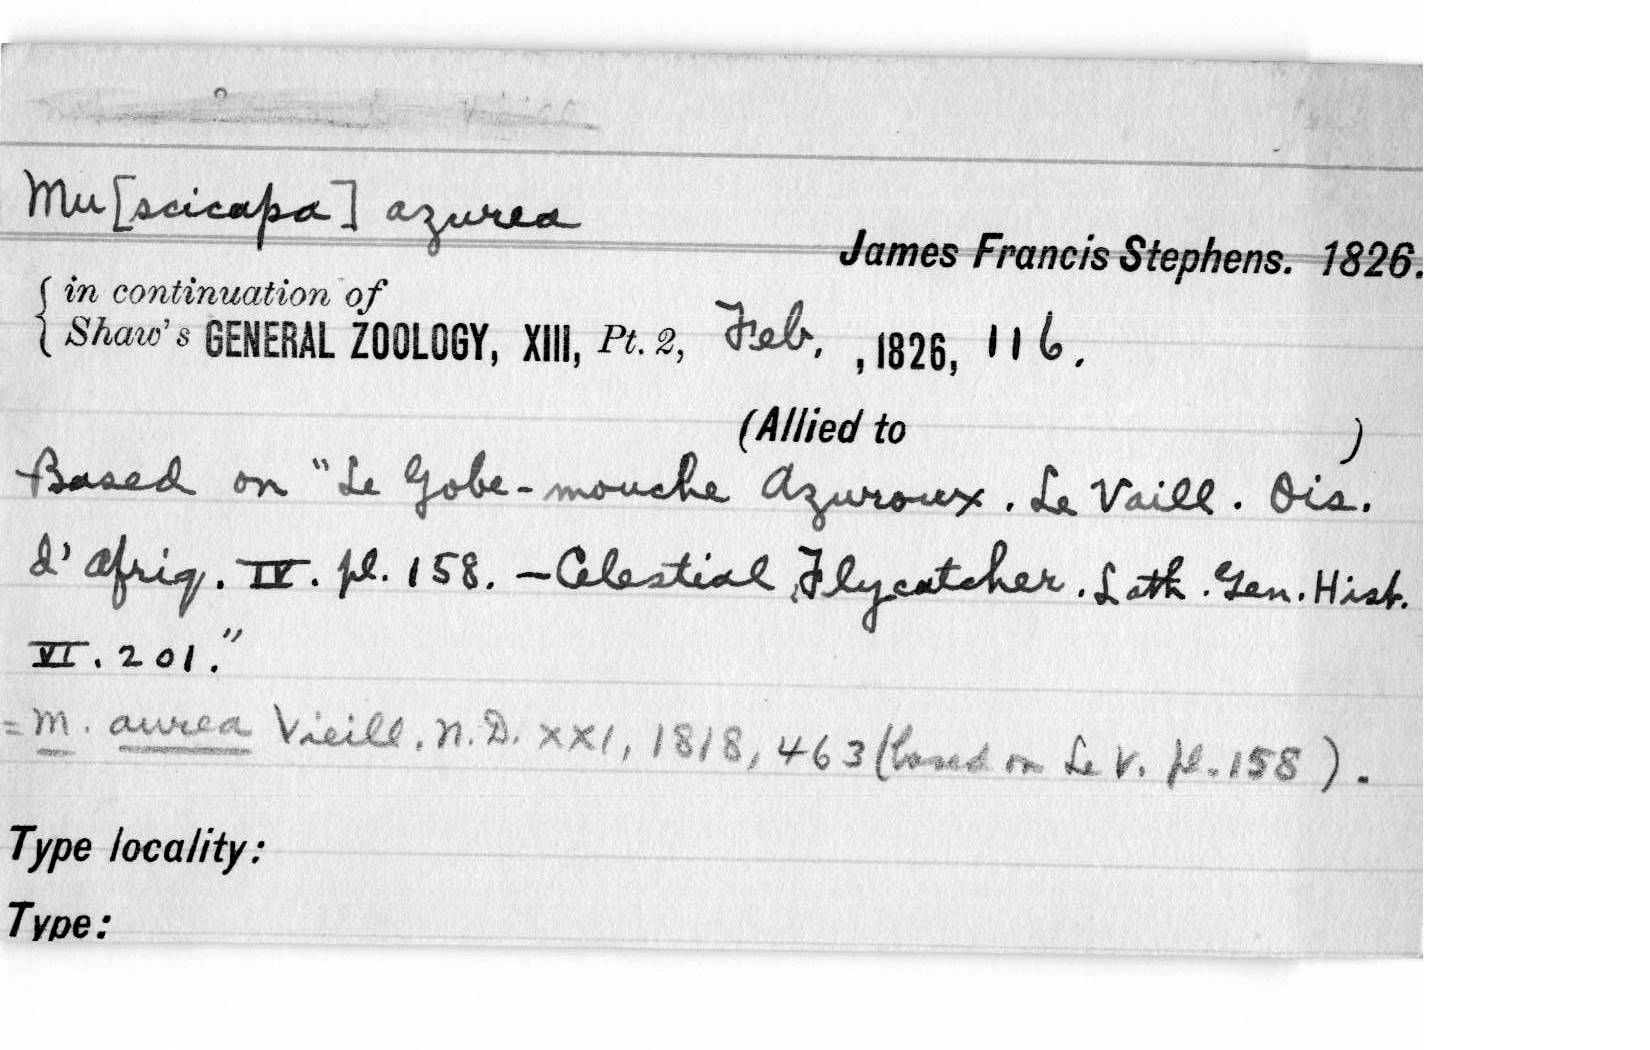 Mu[scicapa] azurea
James Francis Stephens. 1826.
in continuation of
Shaw's GENERAL ZOOLOGY, XIII, Pt. 2, Feb. , 1826, 116.
(Allied to )
Based on "Le Gobe-mouche Azuroux. Le Vaill. Ois.
d'Afriq. IV. pl. 158. — Celestial Flycatcher. Lath. Gen. Hist.
VI. 201."
= M. aurea Vieill. N. D. XXI, 1818, 463 (based on Le V. pl. 158).
Type locality:
Type: